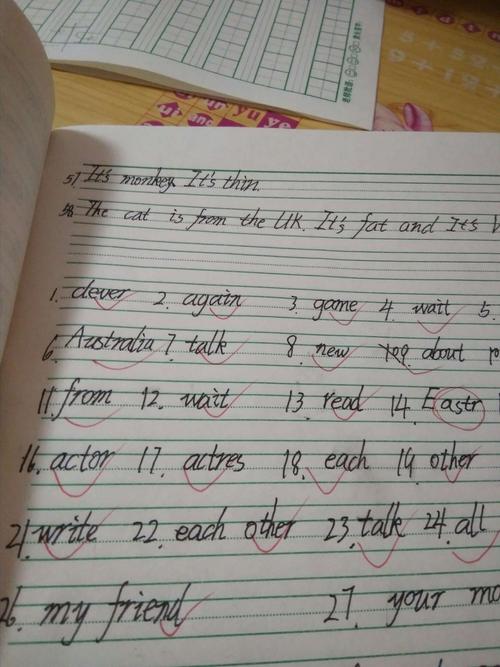 57. It's monkey. It's thin.
58. The cat is from the UK. It's fat and It's
1. clever 2. again 3. game 4. wait 5.
6. Australia 7. talk 8. new 9. about
11. from 12. wait 13. read 14. Eastr
16. actor 17. actres 18. each 19. other
21. write 22. each other 23. talk 24. all
26. my friend 27. your